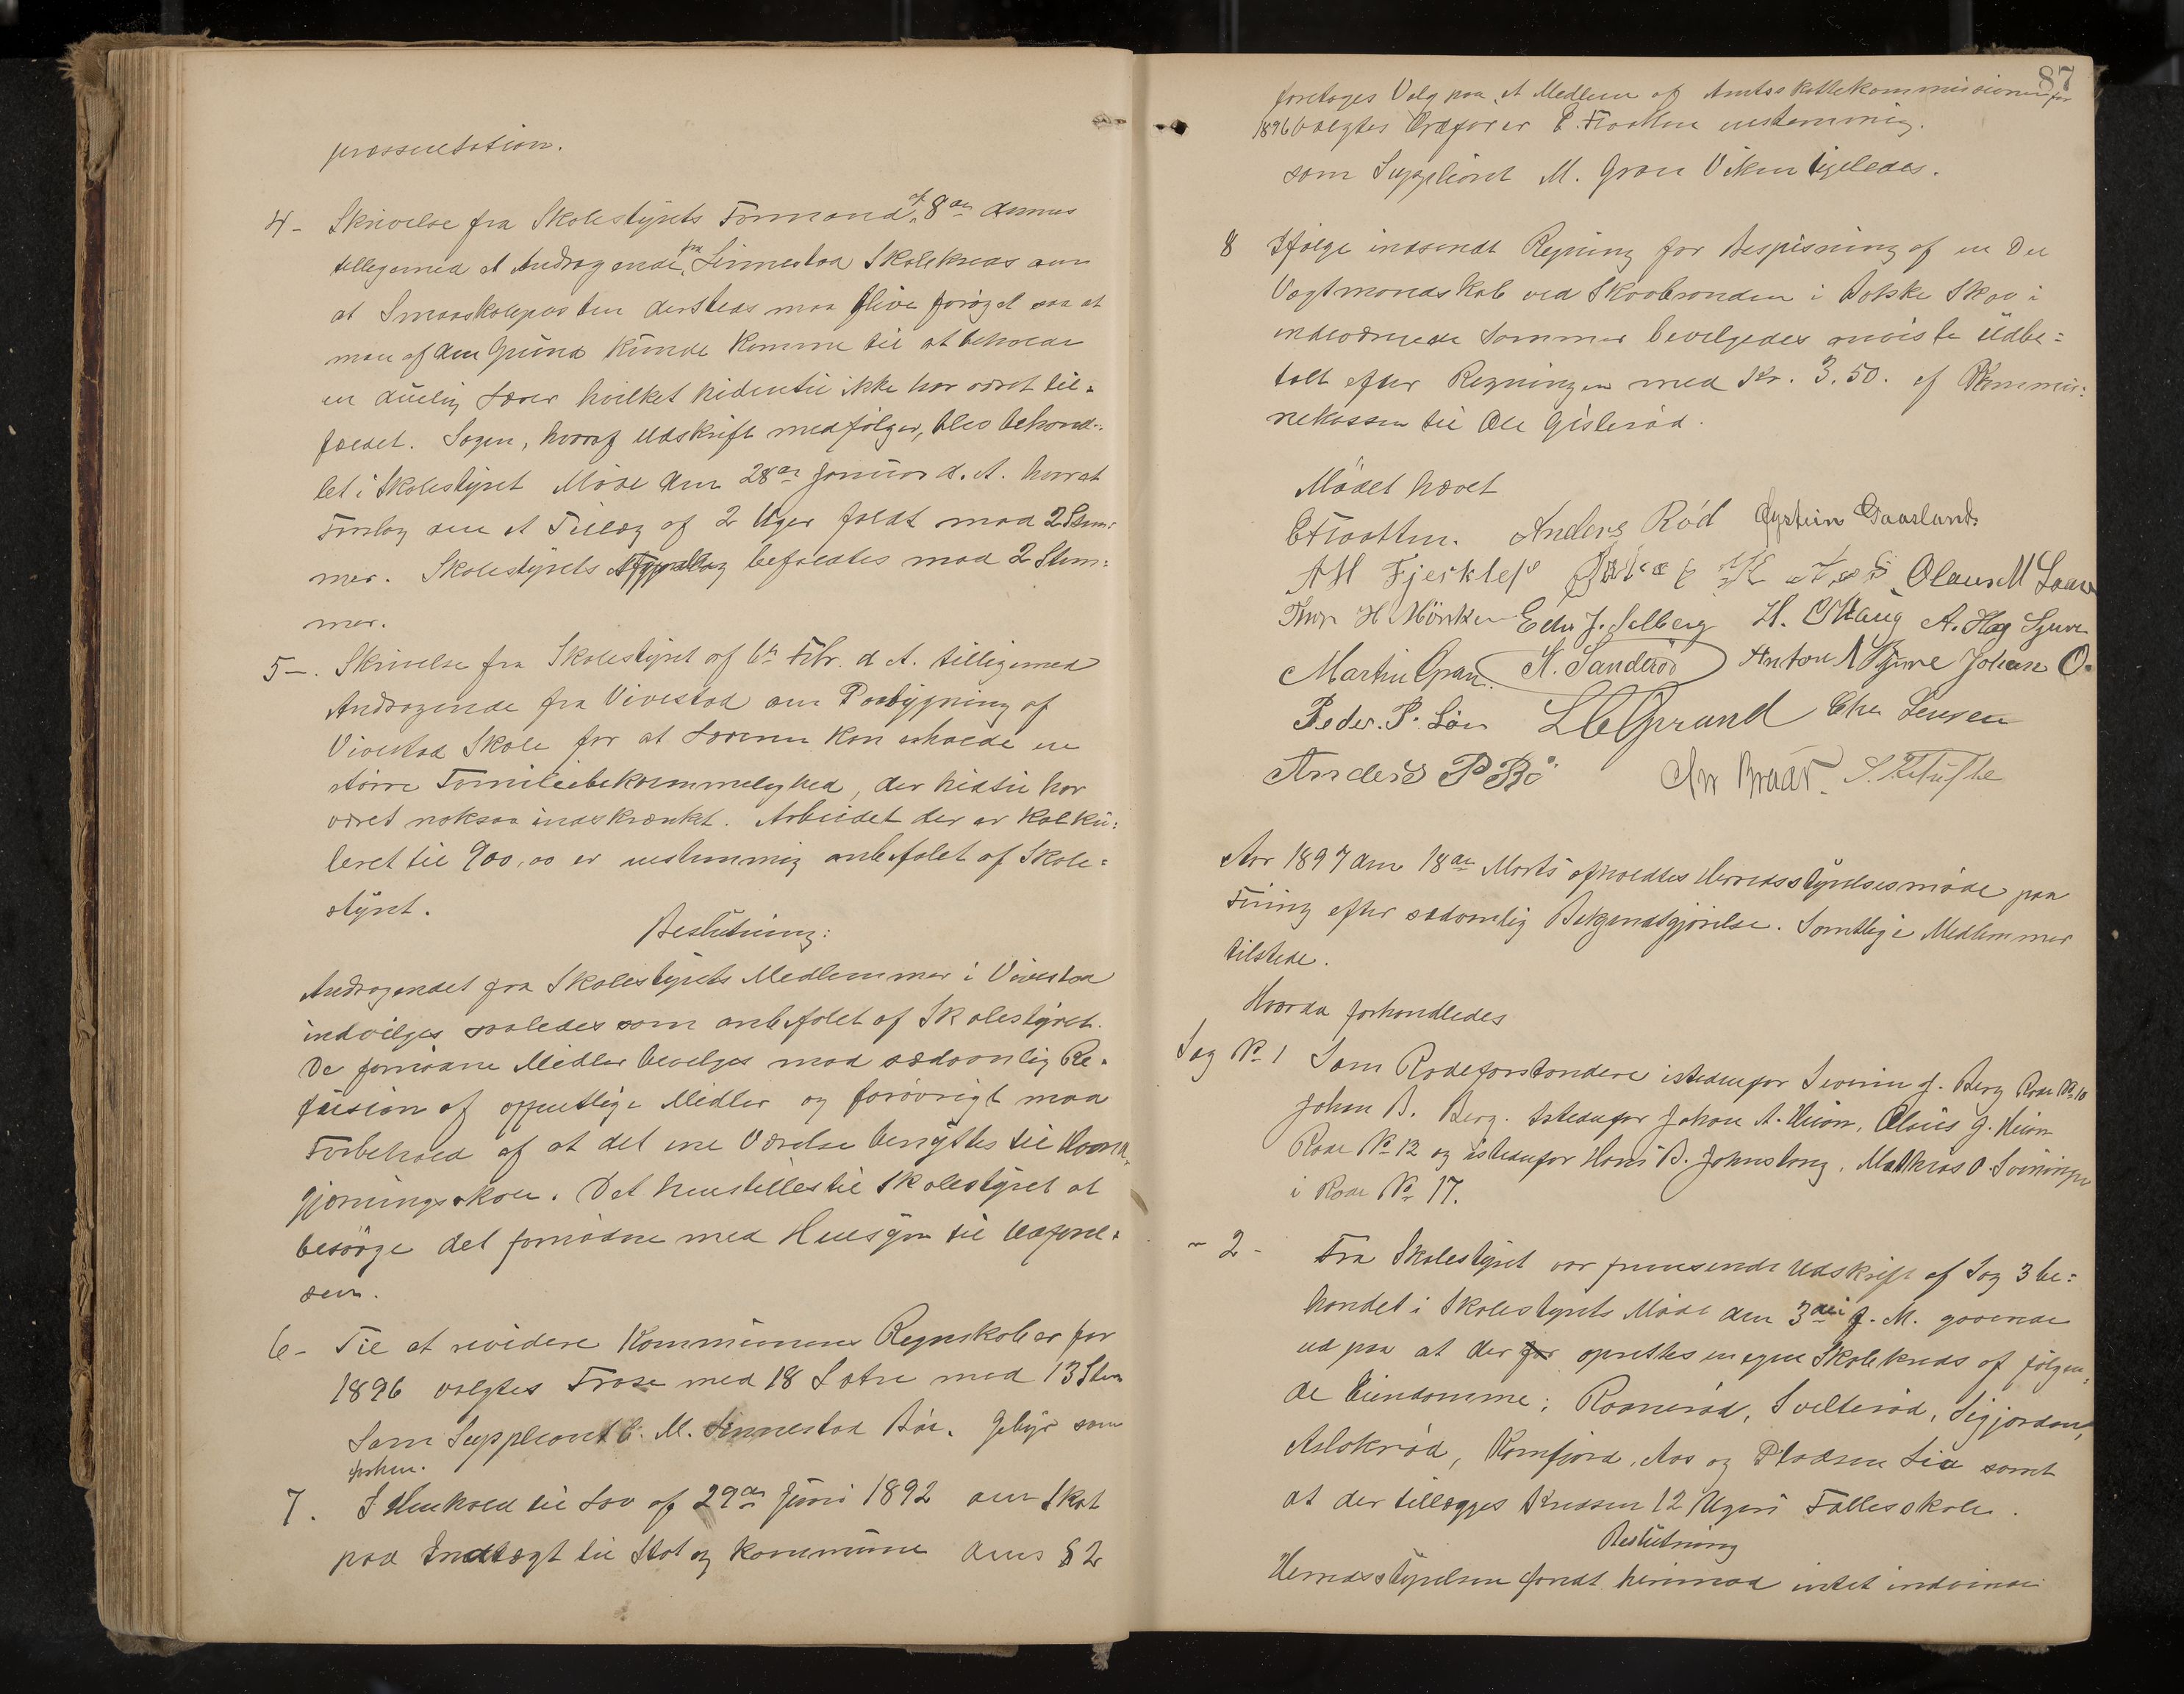 præsentation.
4- Skrivelse fra Skolestyrets Formand af 8de dennes
tilligemed et Andragende fra Linnestad Skolekreds om
at Smaaskoleposten dersteds maa blive forøget saa at
man af den Grund kunde komme til at beholde
en duelig Lærer hvilket hidentil ikke har været til-
fældet. Sagen, hvoraf Udskrift medfølger, blev behand-
let i Skolestyret Møde den 28de Januar d. A. hvorat
Forslag om et Tillæg af 2 Uger faldt mod 2 Stem-
mer. Skolestyrets befaldtes mod 2 Stem:
mer.
5-. Skrivelse fra Skolestyret af 6te Febr. d. A. tilligemed
Andragende fra Vivestad om Paabygning af
Vivestad Skole for at Læreren kan erholde en
større Familiebekvemmelighed, der hidtil har
været noksaa indskrænket. Arbeidet der er kalku:
leret til 900,00 er enstemmig anbefalet af Skole=
styret.
Beslutning:
Andragendet fra Skolestyrets Medlemmer i Vivestad
indvilges saaledes som anbefalet af Skolestyret.
De fornødne Midler bevilges mod sædvanlig Re-
fusion af offentlige Midler og forøvrigt maa
Forbehold af at det ene Værelse benyttes til Haand-
gjerningsskole. Det henstilles til Skolestyret at
besørge det fornødne med Hensyn til Udførel-
sen.
6- Til at revidere Kommunens Regnskaber for
1896 valgtes Frose med 18 Satre med 13 Stem
Som Suppleant C. M. Linnestad Bø. Gebyr som
før.
7. I Henhold til Lov af 29de Juni 1892 om Skat
paa Indtægt til Stat og Kommune dens § 2
87
foretoges Valg paa et Medlem af Amtsskattekommissionen for
1896 valgtes Ordfører E. Flaatten enstemmig.
som Suppliant M. Gran Viken ligeledes.
8 Ifølge indsendt Regning for Bespisning af en Del
Vagtmandskab ved Skovbranden i Bakske Skov i
indeværende Sommer bevilgedes udbe=
talt efter Regningen med Kr. 3,50. af Kommu-
nekassen til Ole Gislerød.
Mødet hævet
E Flaatten. Anders Rød Øystein Gaasland
A H Fjerkleps Olaus M Laane
Thor H Mörken Edv J. Selberg H. O Haug A. Hag
Martin Gran. N. Sanderød Anton N Johan O.
Peder. P. Lön L C Grand Chr Lensen
Anders P Bö An Braar.
Aar 1897 den 18de Marts afholdtes Herredsstyrelsesmøde paa
Firing efter sædvanlig Bekjendtgjørelse. Samtlige Medlemmer
tilstede.
Hvorda forhandledes
Sag No 1 Som Rodeforstandere istedenfor Severin J. Berg Rode No 10
Johan B. Berg. Istedenfor Johan A. Heian, Olaus J. Heian
Rode No 12 og istedenfor Hans B. Johnskong, Mathias O. Sviningen
i Rode No 17.
- 2 - Fra Skolestyret var fremsendt Udskrift af Sag 3 be=
handlet i Skolestyrets Møde den 3die f. M. gaaende
ud paa at der for oprettes en egen Skolekreds af følgen-
de Eiendomme: Raanerød, Svelterød, Sigjordan,
Aslakrød, Kamfjord, Aas og Pladsen Lia samt
at der tillægges Kredsen 12 Ugers Fællesskole.
Beslutning
Herredsstyrelsen fandt herimod intet indvende